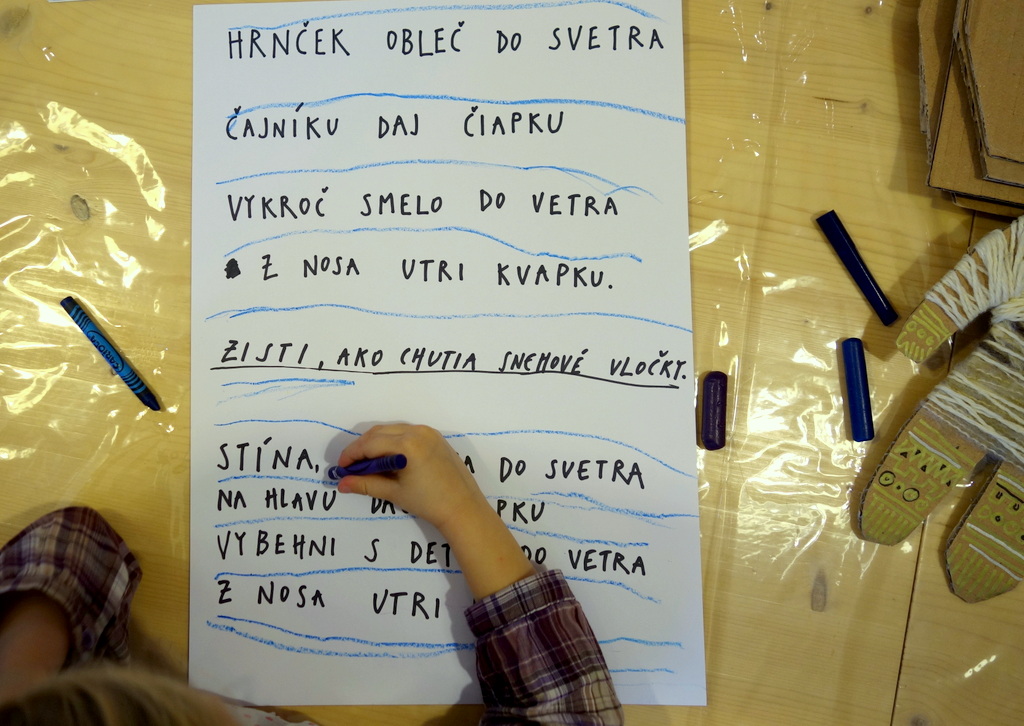 HRNČEK OBLEČ DO SVETRA
ČAJNÍKU DAJ ČIAPKU
VYKROČ SMELO DO VETRA
Z NOSA UTRI KVAPKU.
ZISTI, AKO CHUTIA SNEHOVÉ VLOČKY.
STÍNA, DO SVETRA
NA HLAVU
VYBEHNI S DO VETRA
Z NOSA UTRI